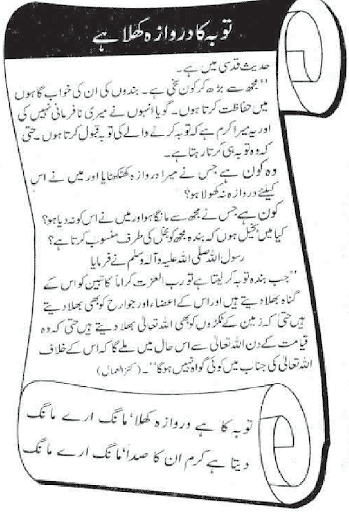 توبہ کا دروازہ کھلا ہے
حدیث قدسی میں ہے۔
”مجھ سے بڑھ کر کون سخی ہے۔ بندوں کی ان کی خواب گاہوں
میں حفاظت کرتا ہوں۔ گویا انہوں نے میری نافرمانی نہیں کی
اور یہ میرا کرم ہے کہ توبہ کرنے والے کی توبہ قبول کرتا ہوں۔ حتیٰ
کہ وہ توبہ ہی کرتا رہتا ہے۔
وہ کون ہے جس نے میرا دروازہ کھٹکھٹایا اور میں نے اس
کیلئے دروازہ نہ کھولا ہو؟
کون ہے جس نے مجھ سے مانگا ہو اور میں نے اس کو نہ دیا ہو؟
کیا میں بخیل ہوں کہ بندہ مجھ کو بخل کی طرف منسوب کرتا ہے؟
رسول اللہ صلی اللہ علیہ وآلہ وسلم نے فرمایا
”جب بندہ توبہ کر لیتا ہے تو رب العزت کراماً کاتبین کو اس کے
گناہ بھلا دیتے ہیں اور اس کے اعضاء اور جوارح کو بھی بھلا دیتے
ہیں حتیٰ کہ زمین کے ٹکڑوں کو بھی اللہ تعالیٰ بھلا دیتے ہیں حتیٰ کہ وہ
قیامت کے دن اللہ تعالیٰ سے اس حال میں ملے گا کہ اس کے خلاف
اللہ تعالیٰ کی جناب میں کوئی گواہ نہیں ہوگا“۔ (کنز العمال)
توبہ کا ہے دروازہ کھلا‘ مانگ ارے مانگ
دیتا ہے کرم ان کا صدا‘ مانگ ارے مانگ